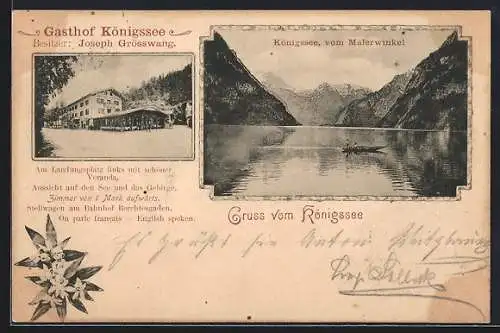 Gasthof Königssee
Besitzer: Joseph Grösswang.
Königssee, vom Malerwinkel
Am Landungsplatz links mit schöner
Veranda,
Aussicht auf den See und das Gebirge,
Zimmer von 1 Mark aufwärts.
Stellwagen am Bahnhof Berchtesgaden.
On parle français — English spoken.
Gruss vom Königssee
Es grüßt Sie Anton